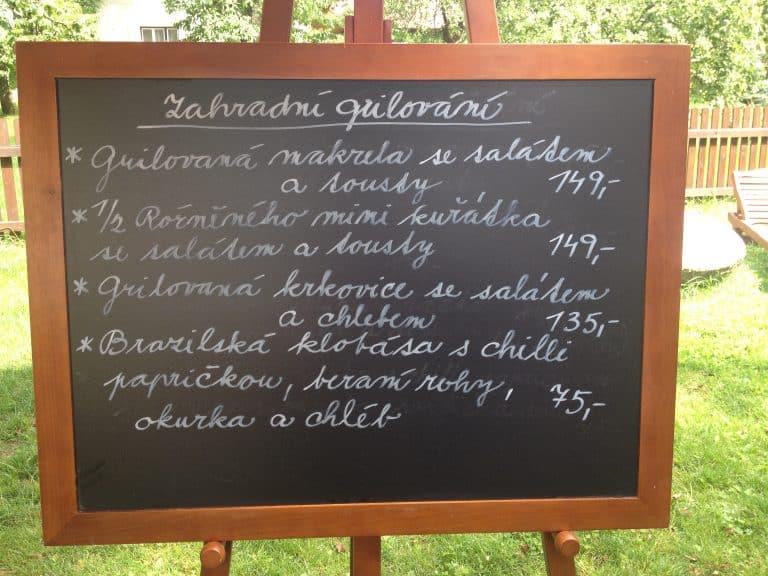 Zahradní grilování
* Grilovaná makrela se salátem
a tousty 149,-
* 1/2 Rožněného mini kuřátka
se salátem a tousty 149,-
* Grilovaná krkovice se salátem
a chlebem 135,-
* Brazilská klobása s chilli
papričkou, beraní rohy, 75,-
okurka a chléb